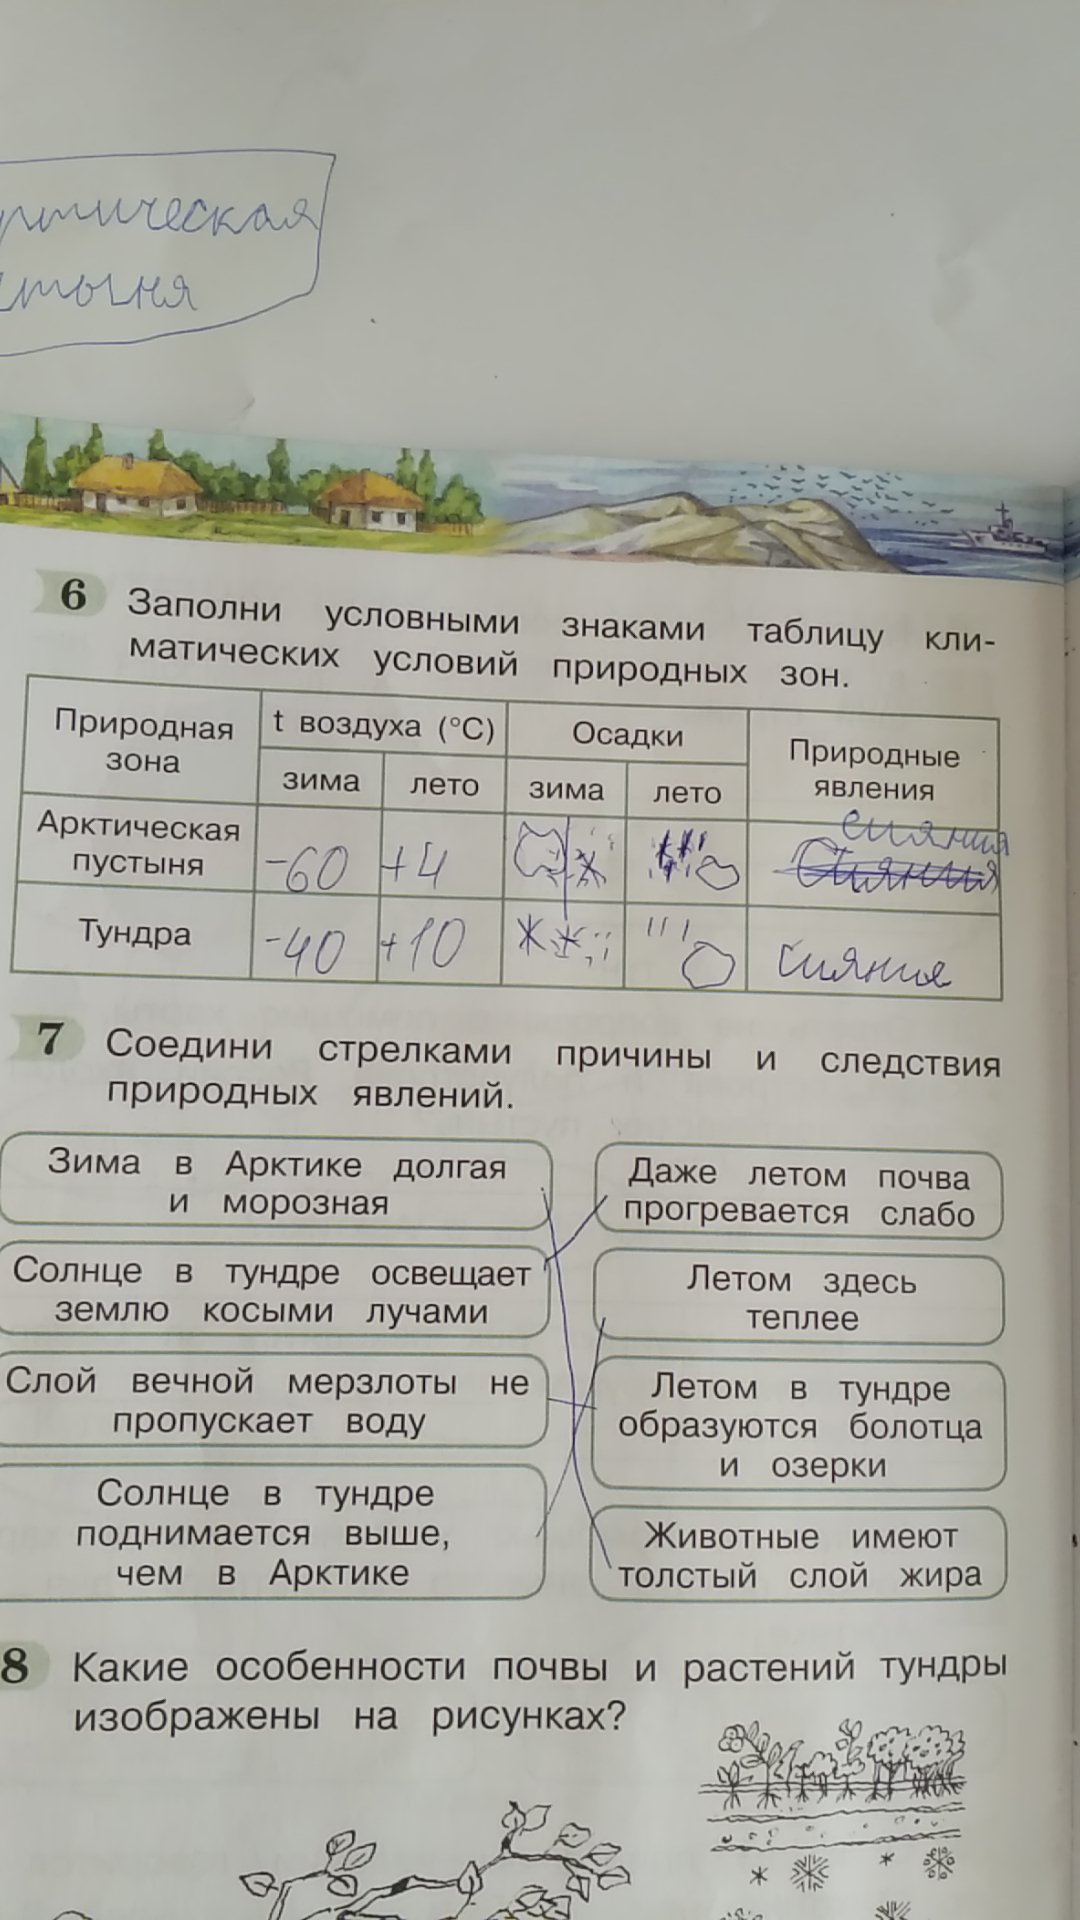 ртическая
стыня
6 Заполни условными знаками таблицу кли-
матических условий природных зон.
Природная зона
t воздуха (°C)
Осадки
Природные явления
зима
лето
зима
лето
Арктическая пустыня
-60
+4
сияния
Сияния
Тундра
-40
+10
сияние
7 Соедини стрелками причины и следствия
природных явлений.
Зима в Арктике долгая
и морозная
Даже летом почва
прогревается слабо
Солнце в тундре освещает
землю косыми лучами
Летом здесь
теплее
Слой вечной мерзлоты не
пропускает воду
Летом в тундре
образуются болотца
и озерки
Солнце в тундре
поднимается выше,
чем в Арктике
Животные имеют
толстый слой жира
8 Какие особенности почвы и растений тундры
изображены на рисунках?